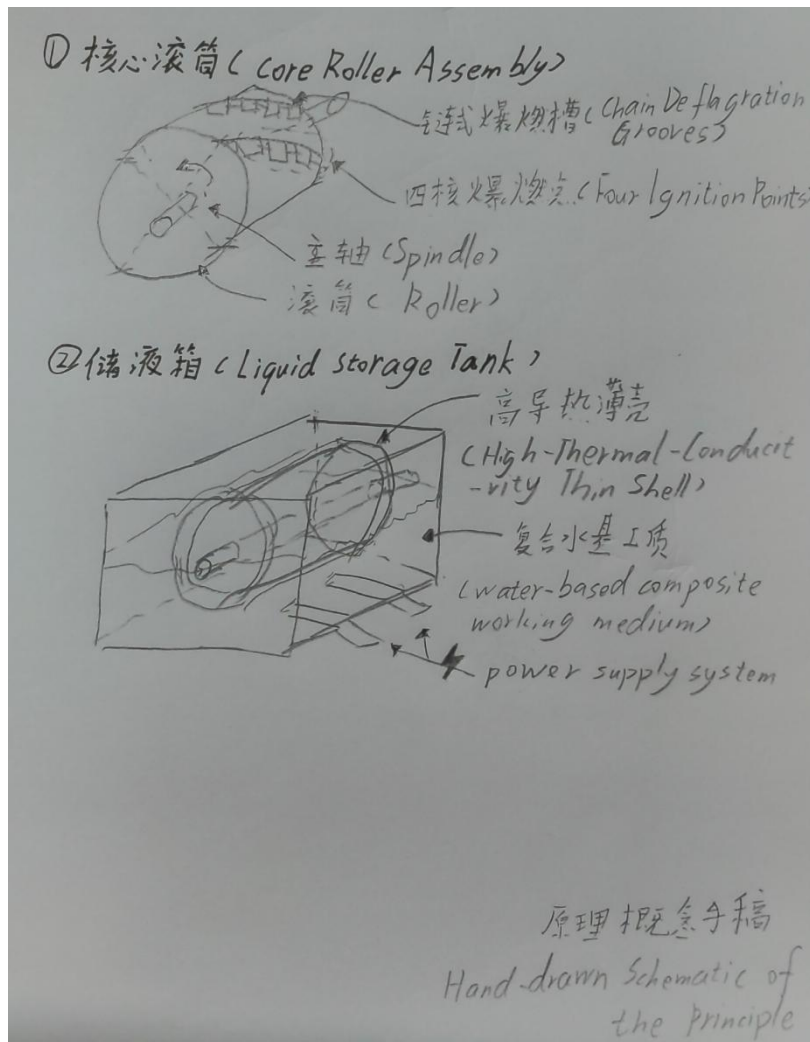 ① 核心滚筒(Core Roller Assembly)
链式爆燃槽(Chain Deflagration
Grooves)
四核爆燃点(Four Ignition Points
主轴(Spindle)
滚筒(Roller)
② 储液箱(Liquid Storage Tank)
高导热薄壳
(High-Thermal-Conduct
-ivity Thin Shell)
复合水基工质
(water-based composite
working medium)
power supply system
原理概念手稿
Hand-drawn Schematic of
the Principle